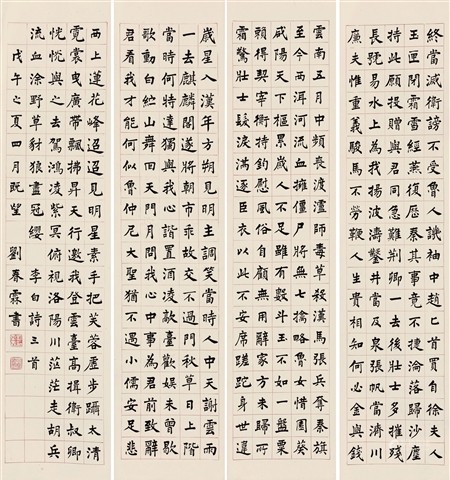 終當滅衛謗不受魯人譏袖中趙匕首買自徐夫人
玉匣閉霜雪經燕復歷秦其事竟不捷淪落歸沙塵
持此願投贈與君同急難荊卿一去後壯士多摧殘
長號易水上為我揚波濤鑿井當及泉張帆當濟川
廉夫惟重義駿馬不勞鞭人生貴相知何必金與錢
雲南五月中頻喪渡瀘師毒草殺漢馬張兵奪秦旗
至今西二河流血擁僵屍將無七擒略魯女惜園葵
咸陽天下樞累歲人不足雖有數斗玉不如一盤粟
賴得契宰衡持鈞慰風俗自顧無所用辭家方未歸
霜驚壯士髮淚滿逐臣衣以此不安席蹉跎身世違
歲星入漢年方朔見明主調笑當時人中天謝雲雨
一去麒麟閣遂將朝市乖故交不過門秋草日上階
當時何特達獨與我心諧置酒凌歊臺歡娛未曾歇
歌動白紵山舞回天門月問我心中事為君前致辭
君看我才能何似魯仲尼大聖猶不遇小儒安足悲
西上蓮花峰迢迢見明星素手把芙蓉虛步躡太清
霓裳曳廣帶飄拂昇天行邀我登雲臺高揖衛叔卿
恍恍與之去駕鴻凌紫冥俯視洛陽川茫茫走胡兵
流血塗野草豺狼盡冠纓 李白詩三首
戊午之夏四月既望 劉春霖書